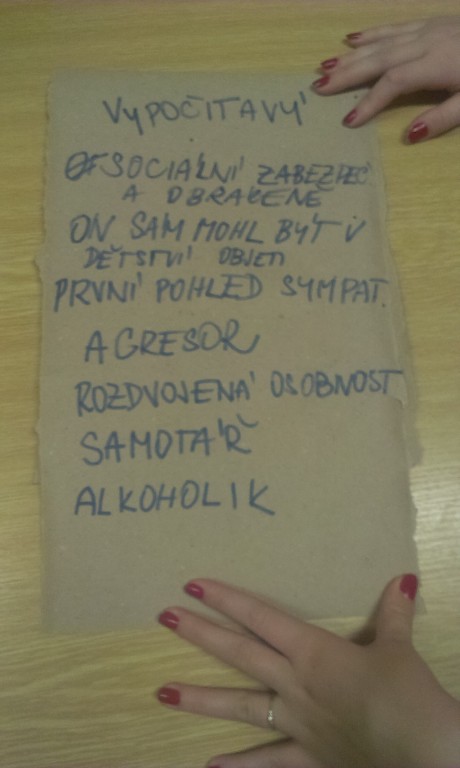 VYPOČÍTAVÝ
SOCIÁLNÍ ZABEZPEČ
A OBRÁCENĚ
ON SÁM MOHL BÝT V
DĚTSTVÍ OBJETI
PRVNÍ POHLED SYMPAT.
AGRESOR
ROZDVOJENÁ OSOBNOST
SAMOTÁŘ
ALKOHOLIK